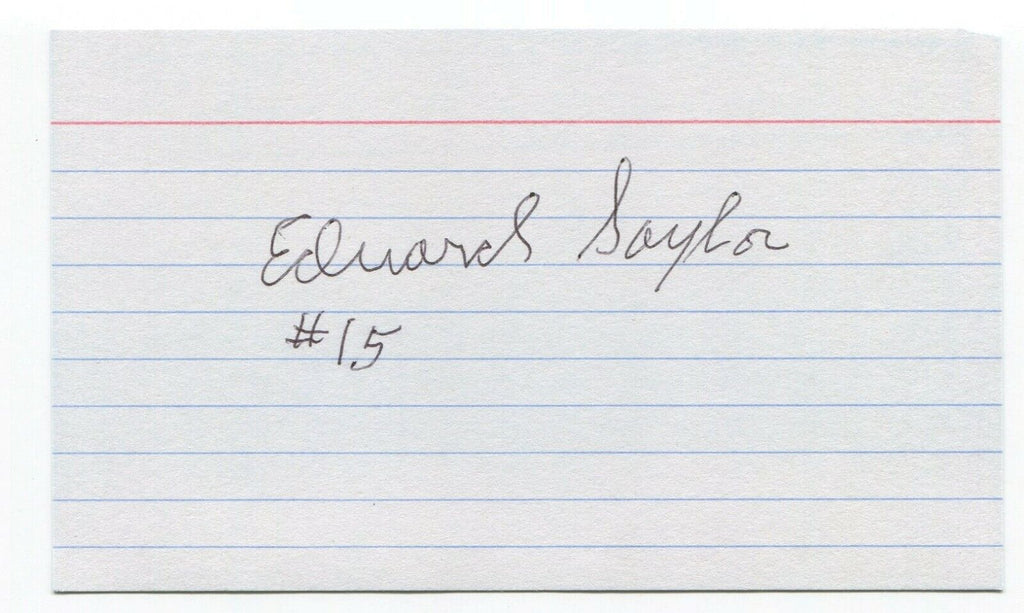 Edward Saylor
#15